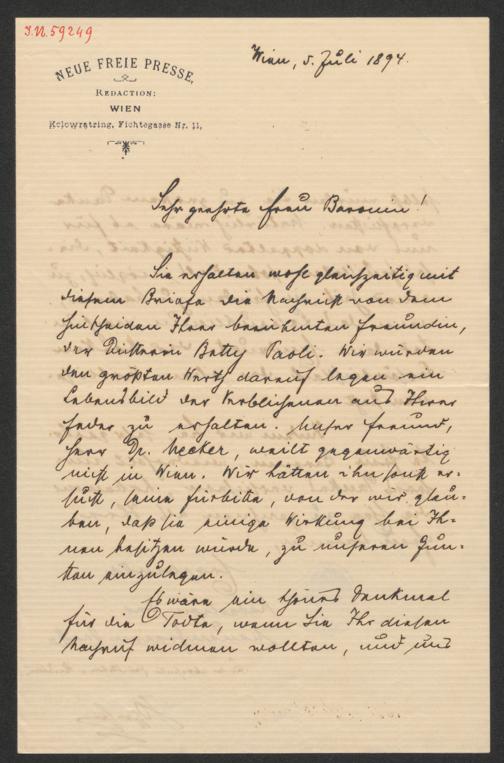 I.N. 59249
NEUE FREIE PRESSE,
REDACTION:
WIEN
Kolowratring, Fichtegasse Nr. 11,
Wien, 5. Juli 1894.
Sehr geehrte Frau Baronin!
Sie erhalten wohl gleichzeitig mit
diesem Briefe die Nachricht von dem
Hinscheiden Ihrer berühmten Freundin,
der Dichterin Betty Paoli. Wir würden
den größten Werth darauf legen ein
Lebensbild der Verblichenen aus Ihrer
Feder zu erhalten. Unser Freund,
Herr Dr. Necker, weilt gegenwärtig
nicht in Wien. Wir hätten ihn sonst er-
sucht, seine Fürbitte, von der wir glau-
ben, daß sie einige Wirkung bei Ih-
nen besitzen würde, zu unseren Gun-
sten einzulegen.
Es wäre ein schönes Denkmal
für die Todte, wenn Sie Ihr diesen
Nachruf widmen wollten, und uns